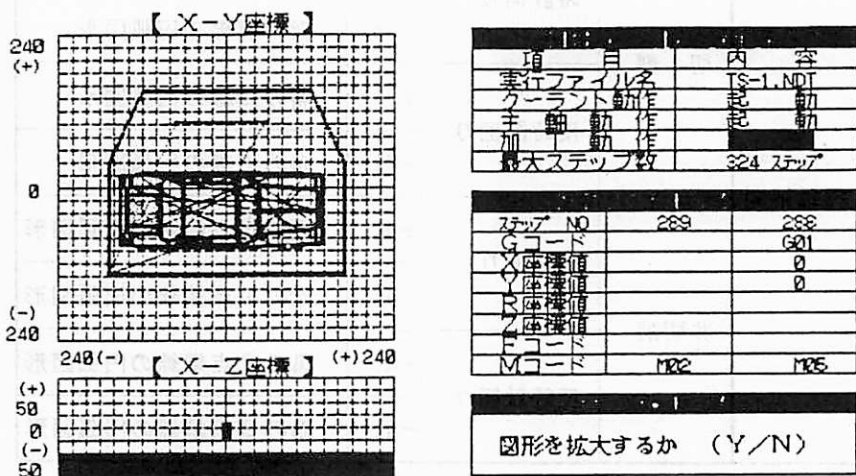 【 X-Y座標 】
240
(+)
0
(-)
240
240(-)
(+)240
【 X-Z座標 】
(+)
50
0
(-)
50
項 目 内 容
実行ファイル名 TS-1.NDT
クーラント動作 起 動
主 軸 動 作 起 動
加 工 動 作
最大ステップ数 324 ステップ
ステップ NO 289 288
Gコード G01
X座標値 0
Y座標値 0
R座標値
Z座標値
Fコード
Mコード M02 M05
図形を拡大するか (Y/N)